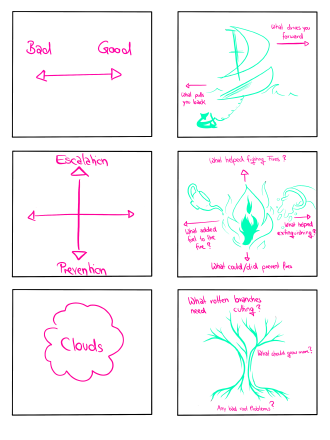 Bad Good
What drives you
forward
What pulls
you back
Escalation
Prevention
What helped fighting Fires?
What added
fuel to the
fire?
What helped
extinguishing?
What could/did prevent fires
Clouds
What rotten branches
need cutting?
What could grow more?
Any bad root problems?